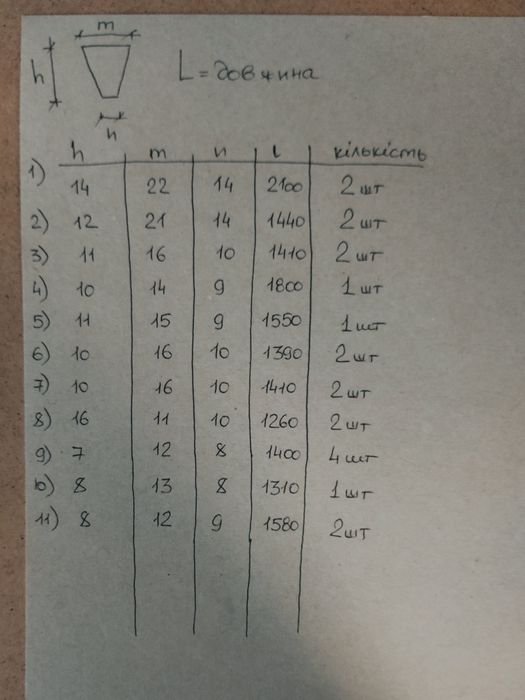 m
h
L = довжина
n
h m n l кількість
1) 14 22 14 2100 2 шт
2) 12 21 14 1440 2 шт
3) 11 16 10 1410 2 шт
4) 10 14 9 1800 1 шт
5) 11 15 9 1550 1 шт
6) 10 16 10 1390 2 шт
7) 10 16 10 1410 2 шт
8) 16 11 10 1260 2 шт
9) 7 12 8 1400 4 шт
10) 8 13 8 1310 1 шт
11) 8 12 9 1580 2шт